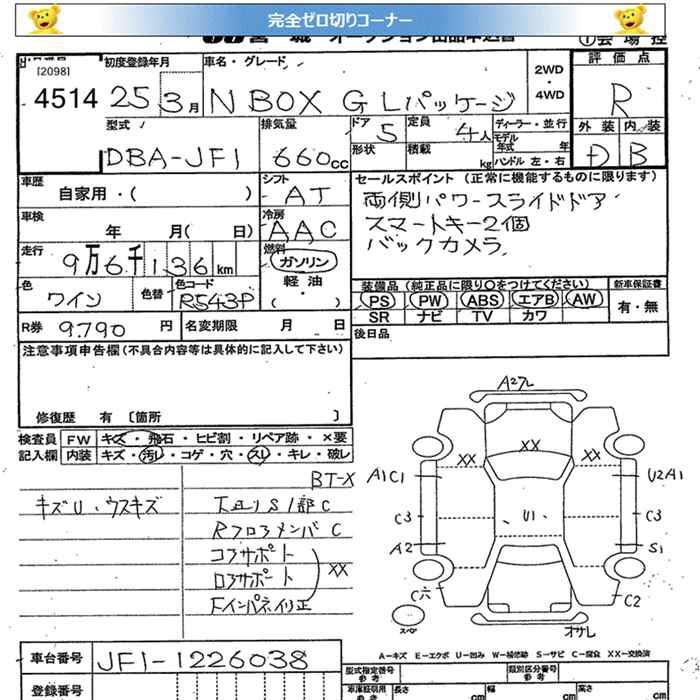 完全ゼロ切りコーナー
[2098]
4514
初度登録年月
25 3月
車名・グレード
N BOX G Lパッケージ
2WD
4WD
評価点
R
外装 内装
D B
型式
DBA-JF1
排気量
660cc
ドア 5
定員 4人
形状
積載 kg
ディーラー・並行
モデル年式 年
ハンドル 左・右
車歴
自家用・( )
シフト
AT
車検
年 月( 日)
冷房
AAC
走行
9万6千136km
燃料
ガソリン
軽油
( )
色
ワイン
色替
色コード
R543P
R券 9.790 円
名変期限 月 日
セールスポイント (正常に機能するものに限ります)
両側パワースライドドア
スマートキー2個
バックカメラ
装備品 (純正品に限り○をつけてください)
新車保証書
PS PW ABS エアB AW
SR ナビ TV カワ
有・無
後日品
注意事項申告欄(不具合内容等は具体的に記入して下さい)
修復歴 有 〔箇所 〕
検査員記入欄
FW キズ・飛石・ヒビ割・リペア跡・×要
内装 キズ・汚れ・コゲ・穴・スレ・キレ・破レ
BT-X
キズU・ウスキズ
下廻りS1部C
Rフロアメンバ C
コアサポート
ロアサポート
XX
FインパネイリE
A2フレ
XX
XX
XX
A1C1
U2A1
C3
U1
C3
A2
S1
C穴
C2
スペア
オサレ
A-キズ E-エクボ U-凹み W-補修跡 S-サビ C-腐食 XX-交換済
車台番号 JF1-1226038
型式指定番号
参考
類別区分番号
参考
登録番号
車庫証明用
参考
長さ cm
幅 cm
高さ cm